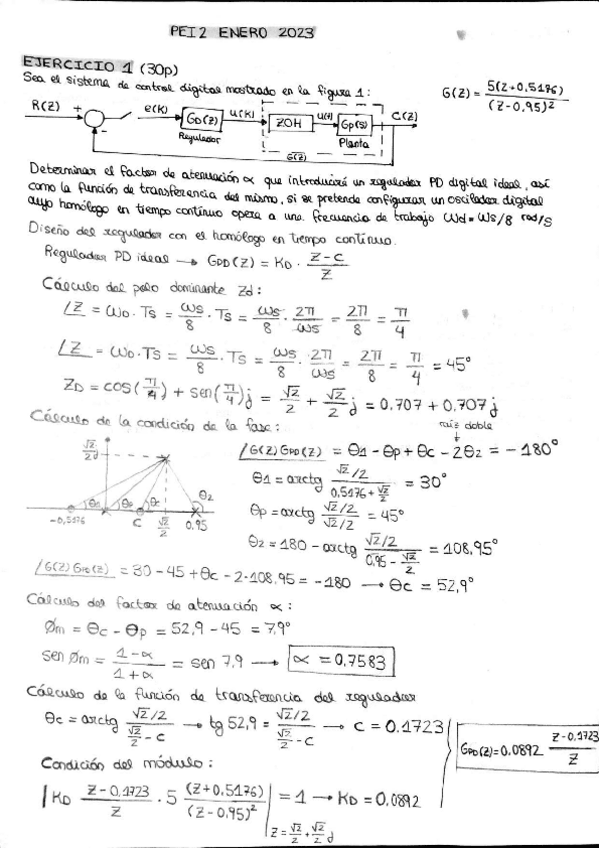 PEI2 ENERO 2023
EJERCICIO 1 (30p)
Sea el sistema de control digital mostrado en la figura 1:
G(Z) = 5(Z+0,5176) / (Z-0,95)²
R(Z) + e(K) GD(Z) u(K) ZOH u(t) Gp(s) C(Z)
Regulador Planta
G(Z)
Determinar el factor de atenuación α que introducirá un regulador PD digital ideal, así
como la función de transferencia del mismo, si se pretende configurar un oscilador digital
cuyo homólogo en tiempo continuo opera a una frecuencia de trabajo ωd = ωs/8 rad/s
Diseño del regulador con el homólogo en tiempo continuo.
Regulador PD ideal → GPD(Z) = KD · (Z-C)/Z
Cálculo del polo dominante Zd:
∠Z = ωD · Ts = ωs/8 · Ts = ωs/8 · 2π/ωs = 2π/8 = π/4
∠Z = ωD · TS = ωs/8 · Ts = ωs/8 · 2π/ωs = 2π/8 = π/4 = 45°
ZD = cos(π/4) + sen(π/4)j = √2/2 + √2/2 j = 0,707 + 0,707j
Cálculo de la condición de la fase:
raíz doble
∠G(Z)GPD(Z) = θ1 - θp + θc - 2θ2 = -180°
√2/2 θ1 θp θc θ2
-0,5176 C √2/2 0,95
θ1 = arctg (√2/2) / (0,5176 + √2/2) = 30°
θp = arctg (√2/2) / (√2/2) = 45°
θ2 = 180 - arctg (√2/2) / (0,95 - √2/2) = 108,95°
∠G(Z)GPD(Z) = 30 - 45 + θc - 2·108,95 = -180 → θc = 52,9°
Cálculo del factor de atenuación α:
Øm = θc - θp = 52,9 - 45 = 7,9°
sen Øm = (1-α)/(1+α) = sen 7,9 → α = 0,7583
Cálculo de la función de transferencia del regulador
θc = arctg (√2/2) / (√2/2 - C) → tg 52,9 = (√2/2) / (√2/2 - C) → C = 0.1723
GPD(Z) = 0.0892 (Z-0,1723)/Z
Condición del módulo:
|KD (Z-0,1723)/Z · 5 (Z+0,5176)/(Z-0,95)²| = 1 → KD = 0,0892
Z = √2/2 + √2/2 j